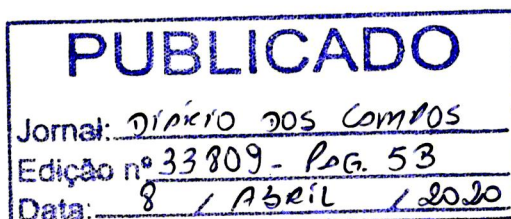 PUBLICADO
Jornal: DIÁRIO DOS CAMPOS
Edição nº 33809 - PAG. 5B
Data: 8 / ABRIL / 2020